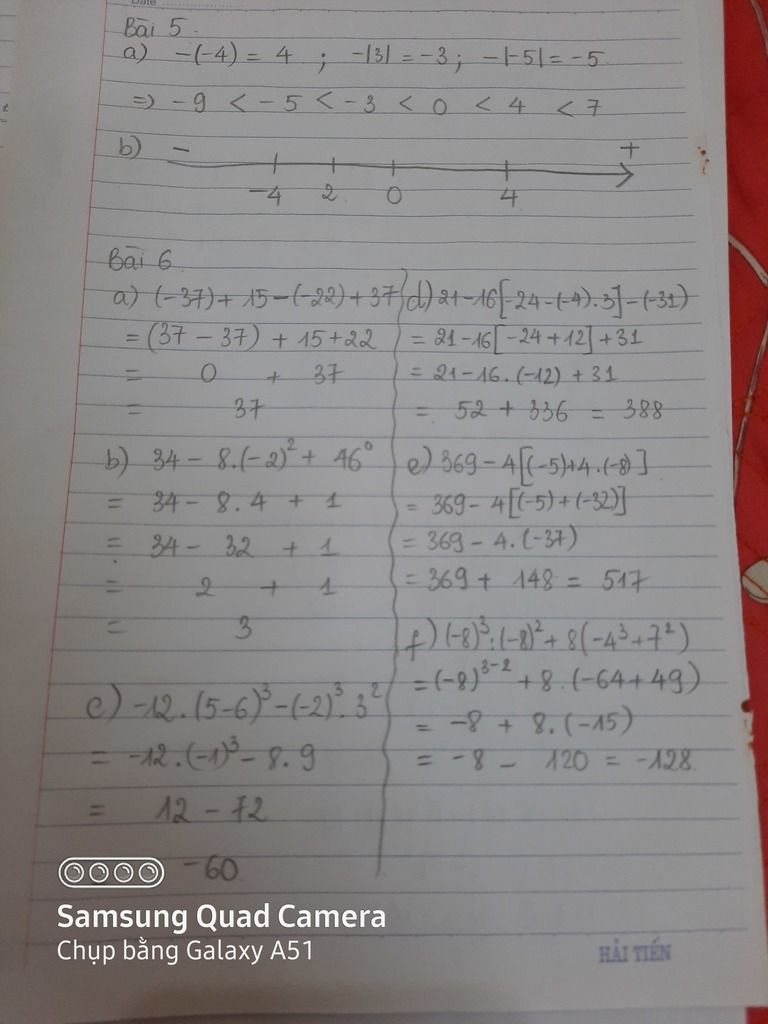 Date
Bài 5
a) -(-4) = 4 ; -|3| = -3 ; -|-5| = -5
=> -9 < -5 < -3 < 0 < 4 < 7
b) - +
-4 2 0 4
Bài 6
a) (-37) + 15 - (-22) + 37
= (37 - 37) + 15 + 22
= 0 + 37
= 37
b) 34 - 8.(-2)² + 46⁰
= 34 - 8.4 + 1
= 34 - 32 + 1
= 2 + 1
= 3
c) -12.(5-6)³ - (-2)³.3²
= -12.(-1)³ - 8.9
= 12 - 72
-60
d) 21 - 16[-24 - (-4).3] - (-31)
= 21 - 16[-24 + 12] + 31
= 21 - 16.(-12) + 31
= 52 + 336 = 388
e) 369 - 4[(-5) + 4.(-8)]
= 369 - 4[(-5) + (-32)]
= 369 - 4.(-37)
= 369 + 148 = 517
f) (-8)³:(-8)² + 8(-4³ + 7²)
= (-8)³⁻² + 8.(-64 + 49)
= -8 + 8.(-15)
= -8 - 120 = -128
Samsung Quad Camera
Chụp bằng Galaxy A51
HẢI TIẾN